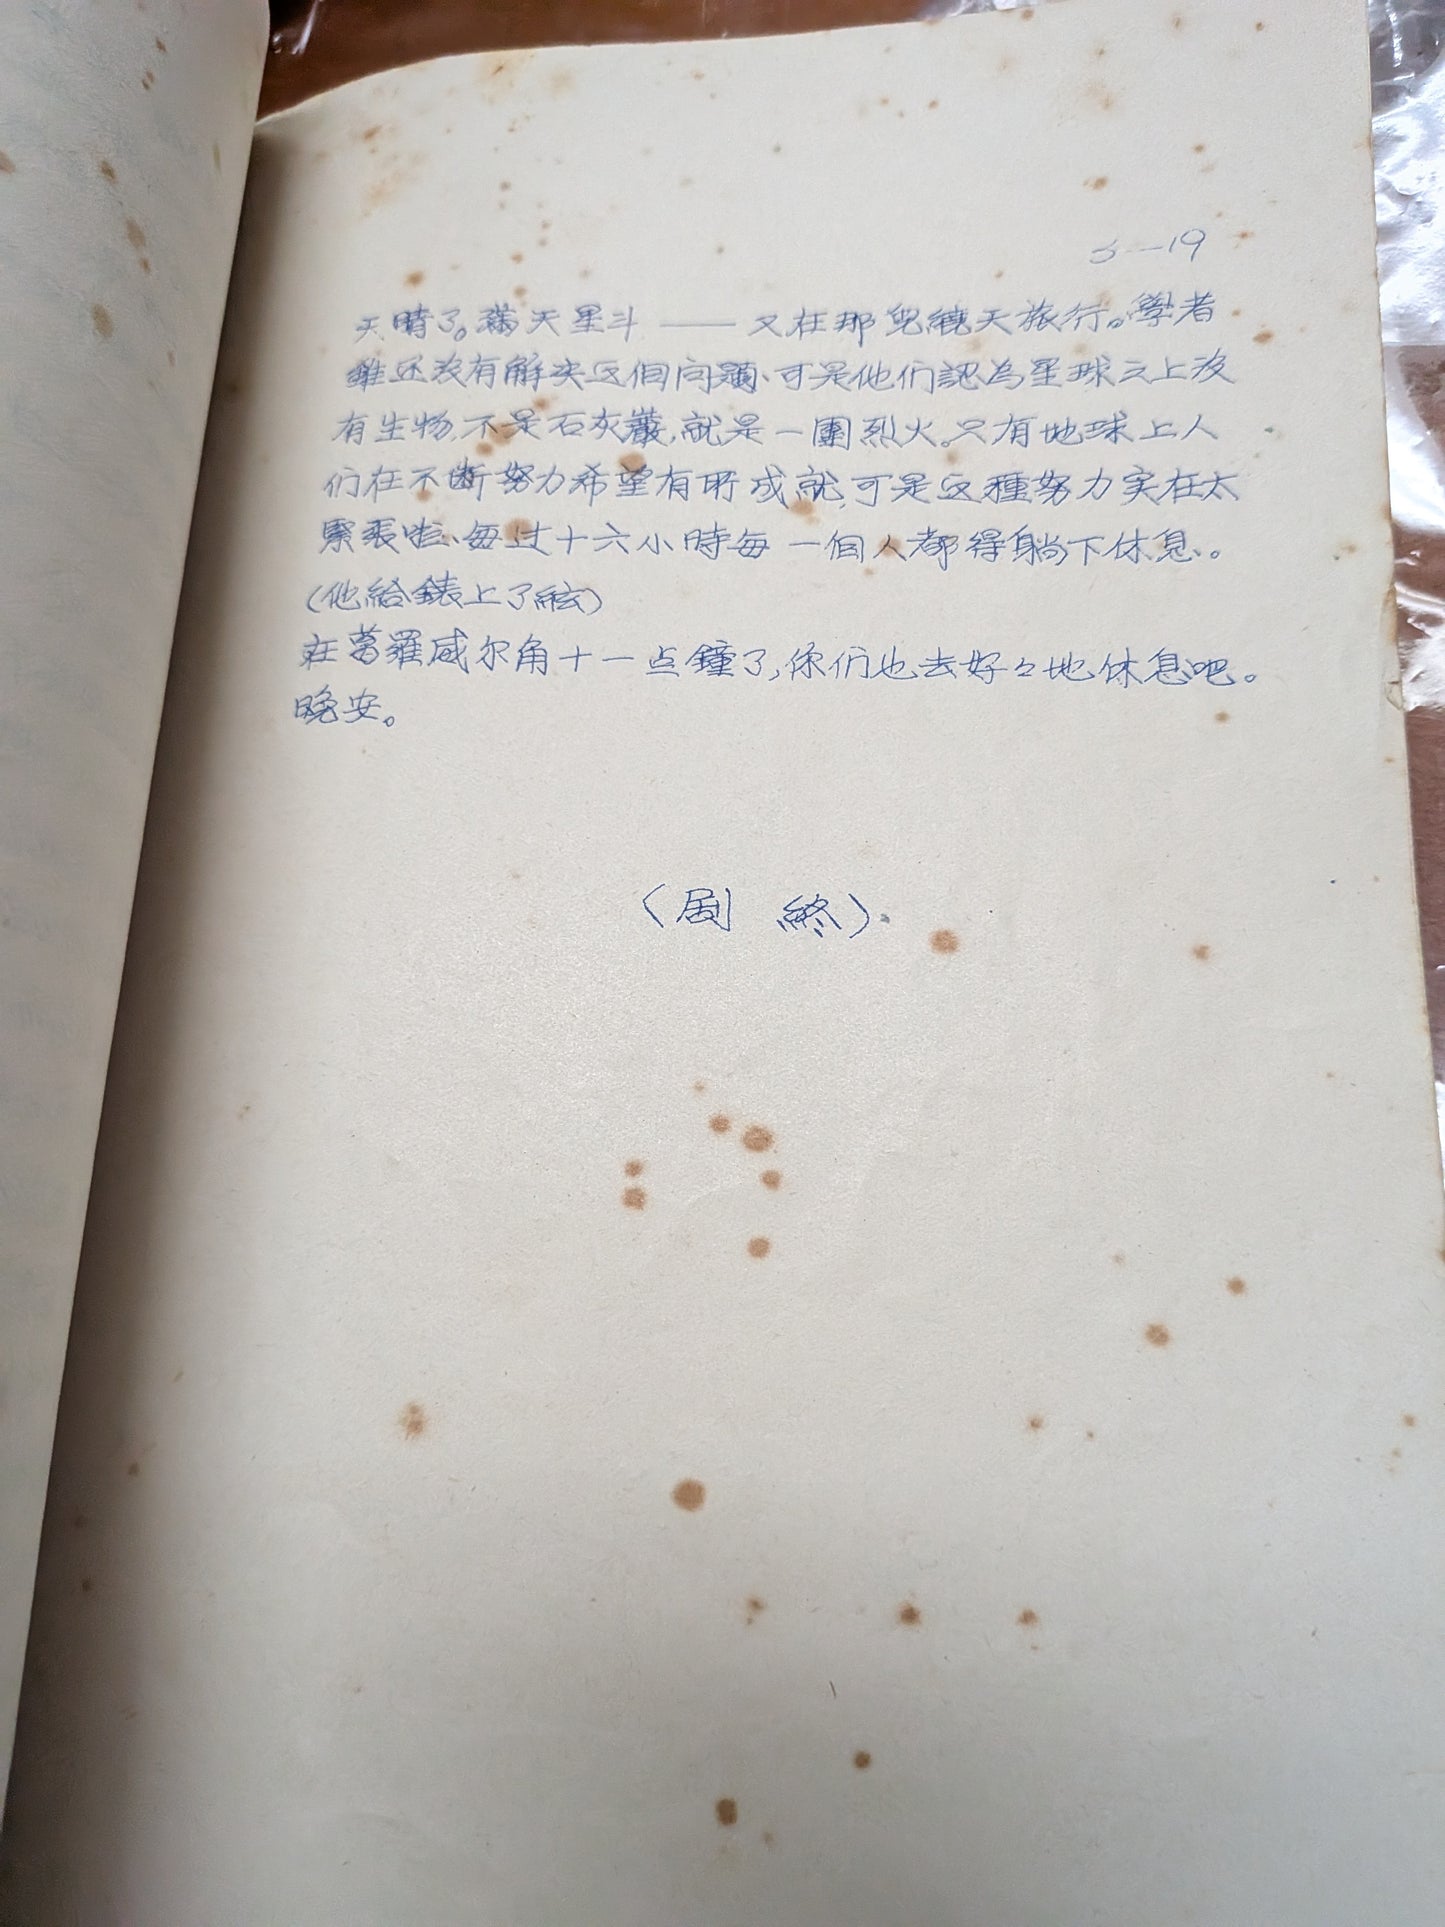 3—19
天晴了。滿天星斗 —— 又在那兒繞天旅行。學者
雖还没有解决这個问題、可是他们認為星球之上没
有生物,不是石灰巖,就是一團烈火。只有地球上人
们在不断努力希望有所成就,可是这種努力实在太
緊張啦、每过十六小時每一個人都得躺下休息、。
(他給錶上了絃)
在葛羅威尔角十一点鐘了,你们也去好々地休息吧。
晚安。
(剧 終).